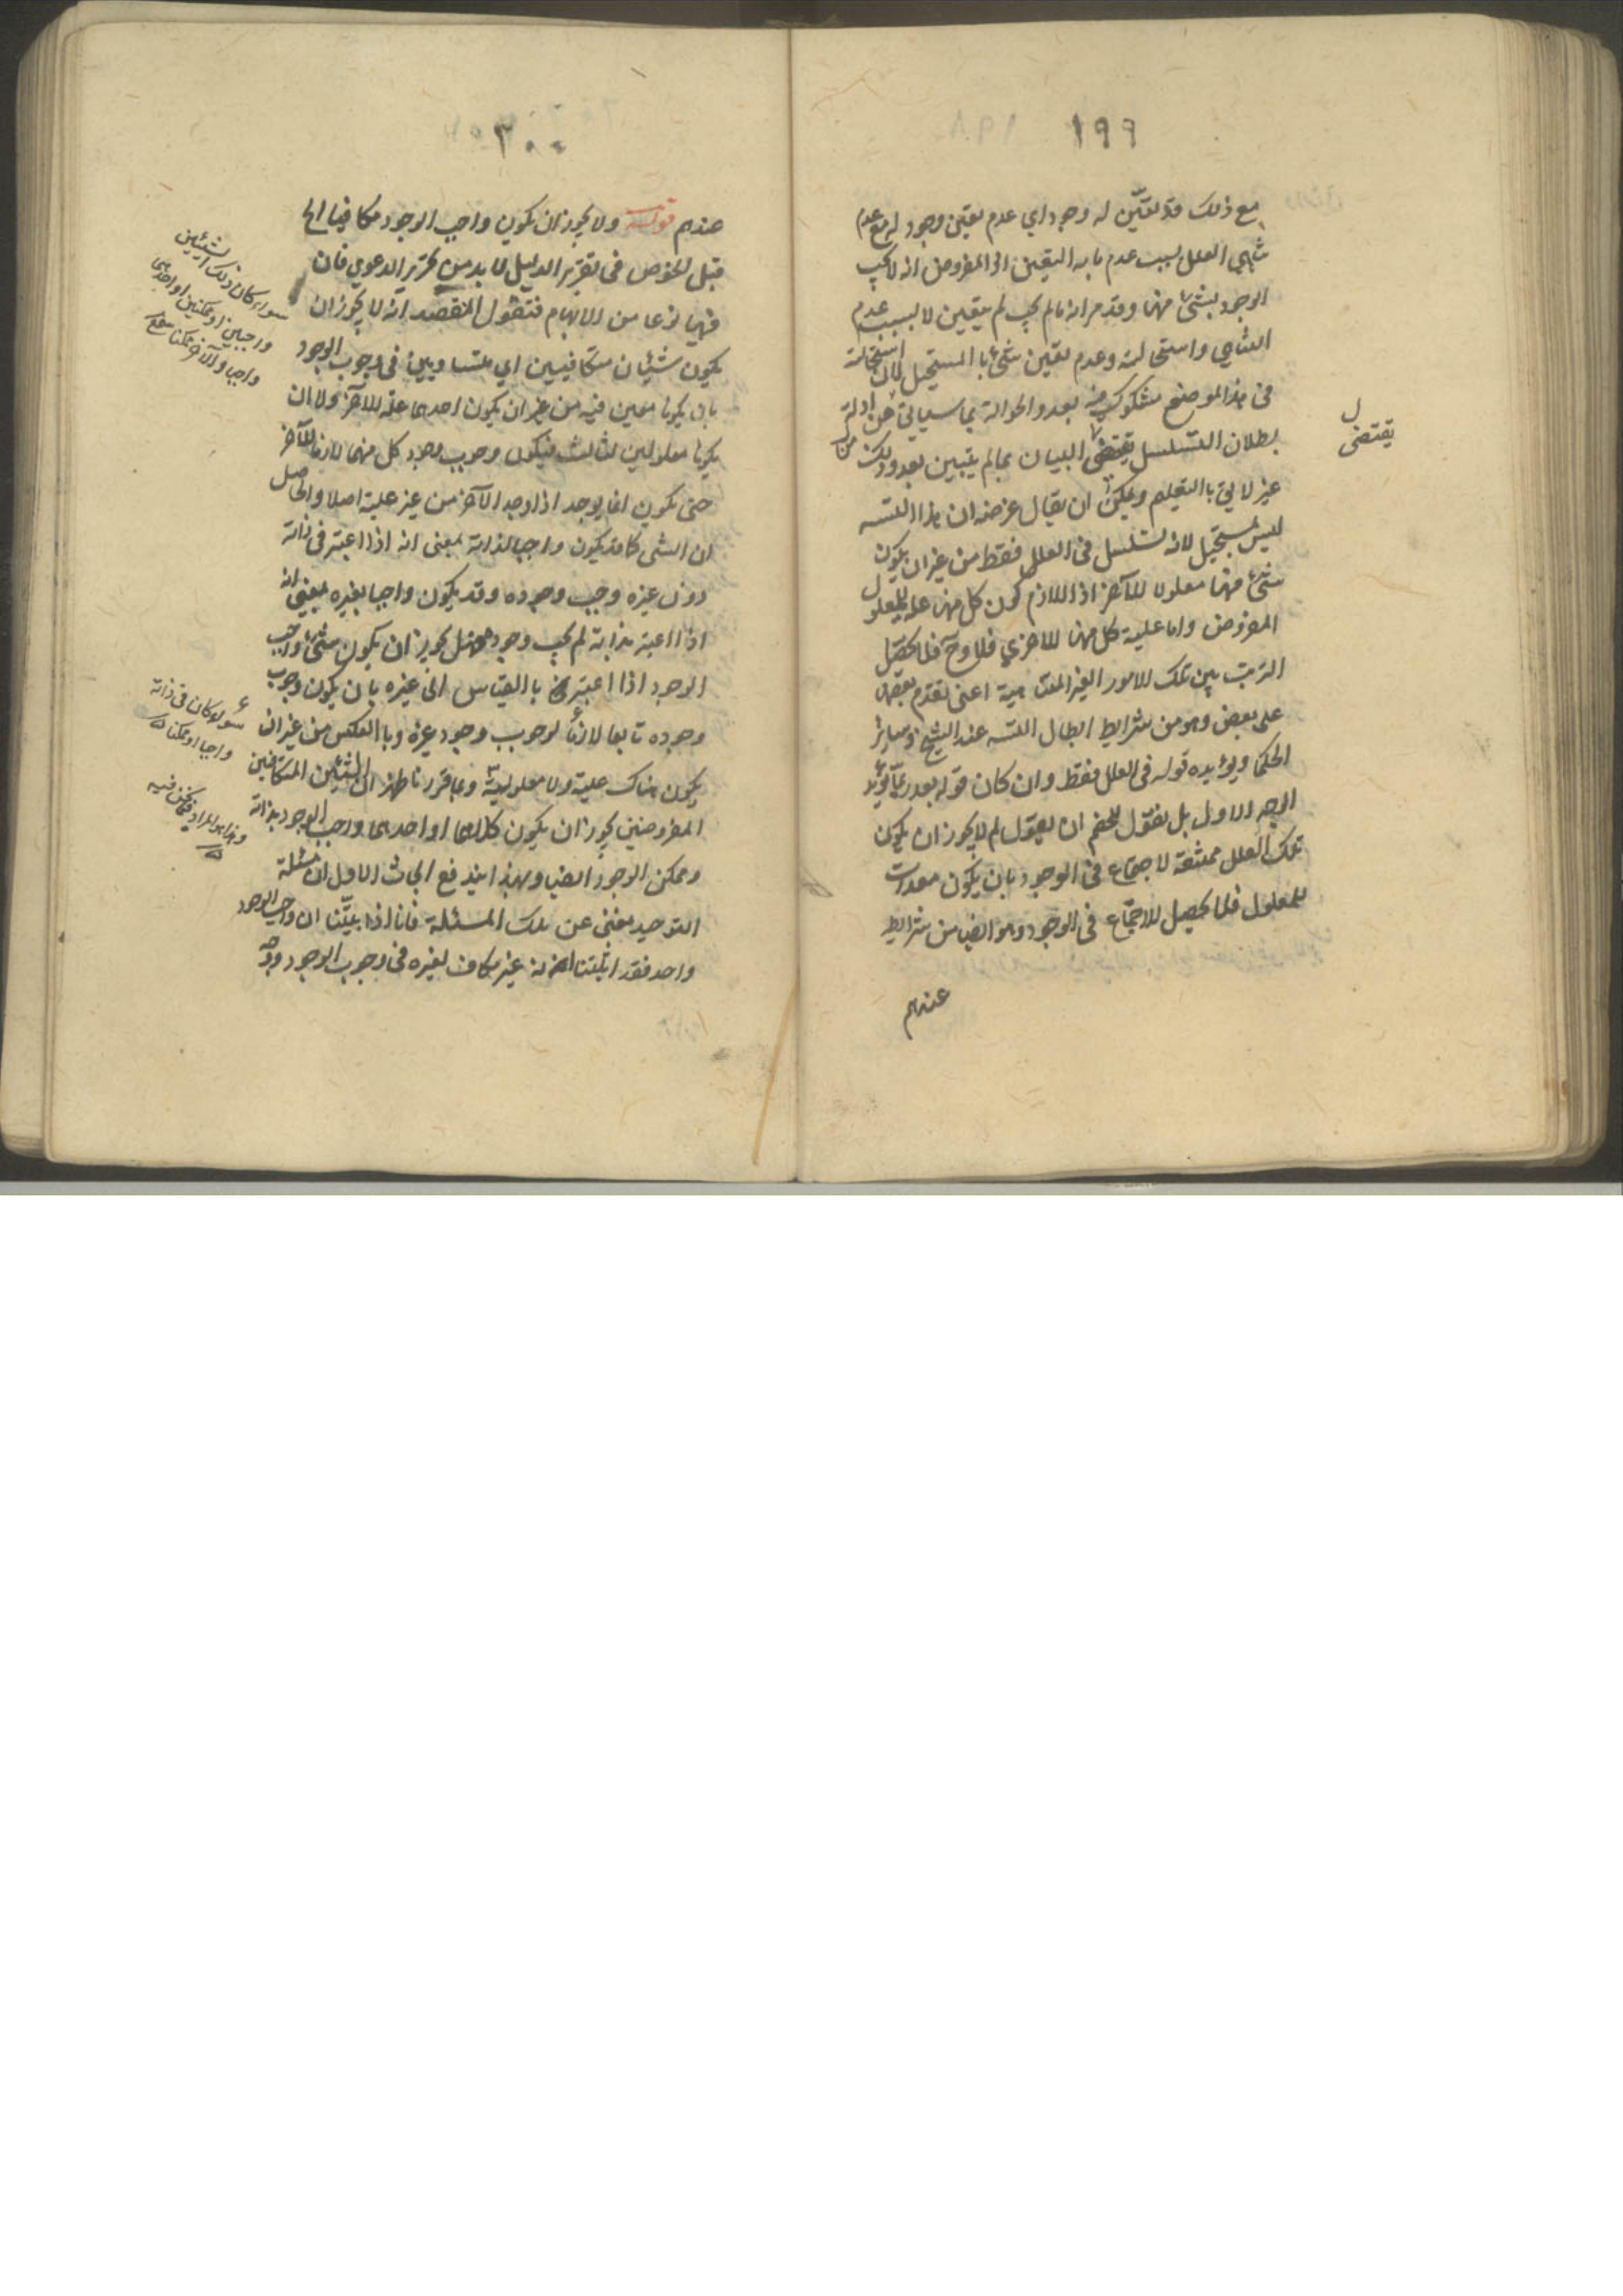 ١٩٩
مع ذلك قد تعيّن له وجود اي عدم تعين وجود له مع عدم
تناهي العلل بسبب عدم ما به التعين اذ المفروض انه لا يجب
الوجود بشئ منها وقد مر انه ما لم يجب لم يتعين لا بسبب عدم
التناهي واستحالته وعدم تعين شئ با المستحيل لان استحالته
فى هذا الموضع مشكوك فيه بعد والحوالة بما سياتي من ادلة
بطلان التسلسل يقتضى البيان بما لم يتبين بعد وذلك
غير لايق با التعليم ويمكن ان يقال غرضه ان هذا التسـ
ليس بمستحيل لانه تسلسل فى العلل فقط من غير ان يكون
شئ منها معلولا للآخر اذ اللازم كون كل منها علة للمعلول
المفروض واما علية كل منها للاخرى فلا وح فلا يحصل
الترتب بين تلك الامور الغير المتناهية اعنى تقدم بعضها
على بعض وهو من شرايط ابطال التسـ عند الشيخ وساير
الحكما ويؤيده قوله فى العلل فقط وان كان قوله بعد ربما يؤيد
الوجه الاول بل نقول للخصم ان يقول لم لا يجوز ان يكون
تلك العلل ممتنعة لاجتماع فى الوجود بان يكون معدات
للمعلول فلا يحصل الاجتماع فى الوجود وهو ايضا من شرايط
عندهم
يقتضى
٢٠٠
عندهم قوله ولا يجوز ان يكون واجب الوجود مكافيا الخ
قبل الخوض فى تقرير الدليل لا بد من تحرير الدعوي فان
فيها نوعا من الابهام فنقول المقصد انه لا يجوز ان
يكون شيئان متكافيين اي متساويين فى وجوب الوجود
بان يكونا معين فيه من غير ان يكون احدهما علة للآخر ولا ان
يكونا معلولين لثالث فيكون وجوب وجود كل منهما لازما للآخر
حتى يكون انما يوجد اذا وجد الآخر من غير علية اصلا والحاصل
ان الشى كما قد يكون واجبا لذاته بمعنى انه اذا اعتبر فى ذاته
دون غيره وجب وجوده وقد يكون واجبا بغيره بمعنى انه
اذا اعتبر بذاته لم يجب وجوده فهل يجوز ان يكون شئ واجب
الوجود اذا اعتبر با القياس الى غيره بان يكون وجوب
وجوده تابعا لازما لوجوب وجود غيره وبا العكس من غير ان
يكون هناك علية ولا معلولية وبما قررنا ظهر ان الشيئين المتكافيين
المفروضين يجوز ان يكون كلاهما او احدهما واجب الوجود بذاته
وممكن الوجود ايضا وبهذا يندفع البحث الاول ان مسئلة
التوحيد مغنى عن تلك المسئلة فانا اذا بيّنا ان واجب الوجود
واحد فقد اثبتنا انه غير مكاف لغيره فى وجوب الوجود ووجه
سواء كان ذلك الشيئين
واجبين او ممكنين او احدهما
واجبا والآخر ممكنا
سواء كان فى ذاته
واجبا او ممكنا
وهذا هو المراد فيما نحن فيه